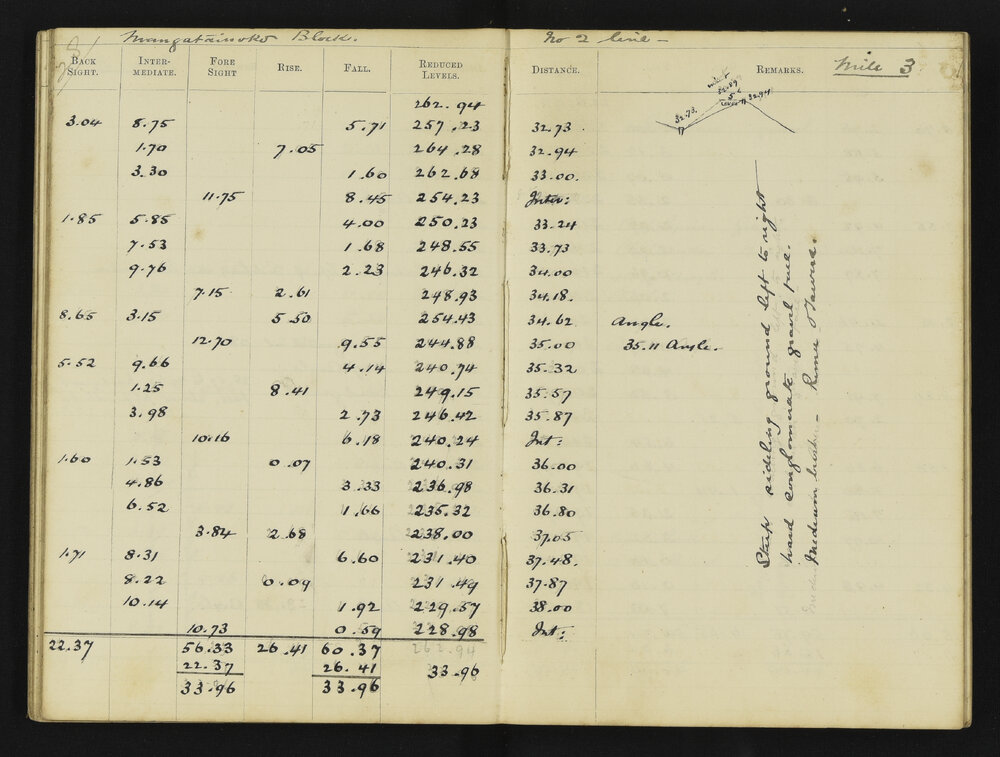 Mangatainoko Block. No 2 line —
BACK SIGHT. INTER-MEDIATE. FORE SIGHT RISE. FALL. REDUCED LEVELS. DISTANCE. REMARKS. Mile 3
262.94
3.04 8.75 5.71 257.23 32.73
1.70 7.05 264.28 32.94
3.30 1.60 262.68 33.00.
11.75 8.45 254.23 Inter:
1.85 5.85 4.00 250.23 33.24
7.53 1.68 248.55 33.73
9.76 2.23 246.32 34.00
7.15 2.61 248.93 34.18.
8.65 3.15 5.50 254.43 34.62 Angle.
12.70 9.55 244.88 35.00 35.11 Angle.
5.52 9.66 4.14 240.74 35.32
1.25 8.41 249.15 35.57
3.98 2.73 246.42 35.87
10.16 6.18 240.24 Int:
1.60 1.53 0.07 240.31 36.00
4.86 3.33 236.98 36.31
6.52 1.66 235.32 36.80
3.84 2.68 238.00 37.05
1.71 8.31 6.60 231.40 37.48.
8.22 0.09 231.49 37.87
10.14 1.92 229.57 38.00
10.73 0.59 228.98 Int:
22.37 56.33 26.41 60.37 262.94
22.37 26.41 33.96
33.96 33.96
32.73.
32.89
32.94
Steep sideling ground left to right
hard conglomerate gravel
Medium bush — Rimu & Tawa.